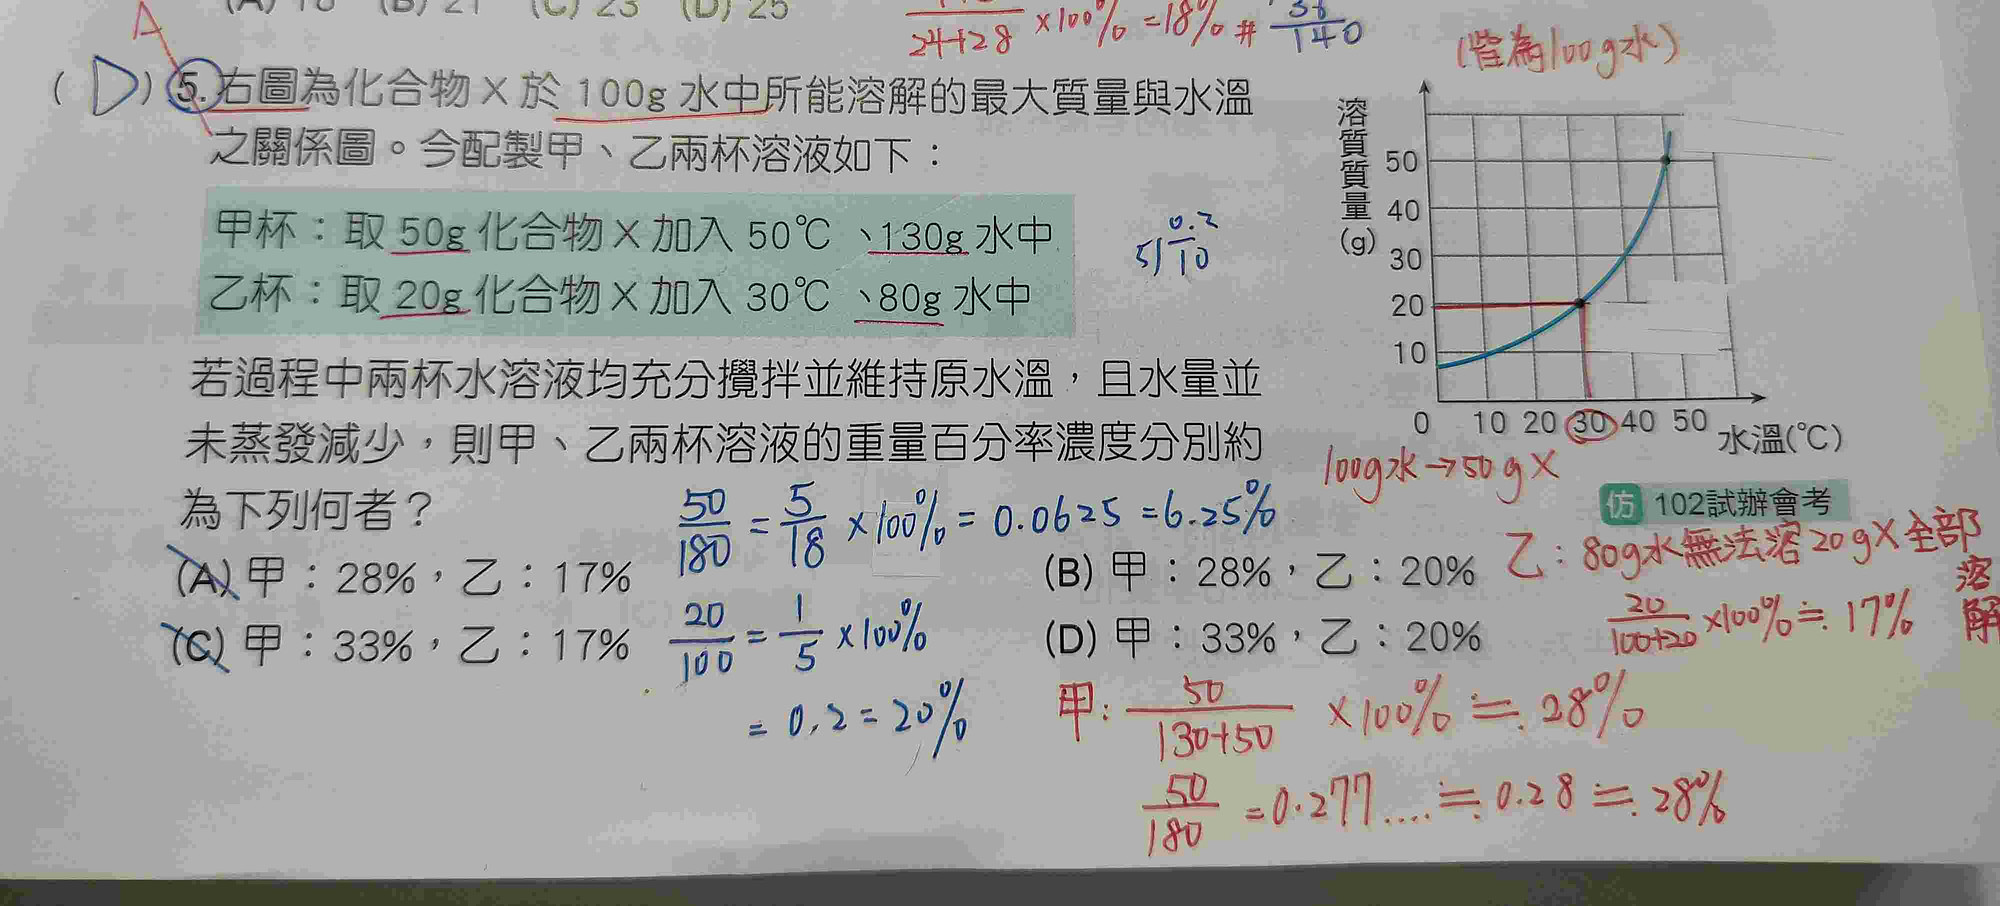 (A) 18 (B) 21 (C) 23 (D) 25
24+28 ×100% =18% #
140
A
(D) 5. 右圖為化合物 X 於 100g 水中所能溶解的最大質量與水溫
之關係圖。今配製甲、乙兩杯溶液如下：
甲杯：取 50g 化合物 X 加入 50℃、130g 水中
乙杯：取 20g 化合物 X 加入 30℃、80g 水中
0.2
5)10
若過程中兩杯水溶液均充分攪拌並維持原水溫，且水量並
未蒸發減少，則甲、乙兩杯溶液的重量百分率濃度分別約
為下列何者？
50/180 = 5/18 ×100% = 0.0625 = 6.25%
(A) 甲：28%，乙：17%
(B) 甲：28%，乙：20%
(C) 甲：33%，乙：17%
(D) 甲：33%，乙：20%
20/100 = 1/5 ×100%
= 0.2 = 20%
(皆為100g水)
溶質質量(g)
50
40
30
20
10
0 10 20 30 40 50 水溫(℃)
100g水→50gX
仿 102試辦會考
乙：80g水無法溶20gX全部溶解
20/100+20 ×100% ≒ 17%
甲: 50/130+50 ×100% ≒ 28%
50/180 =0.277.... ≒ 0.28 ≒ 28%